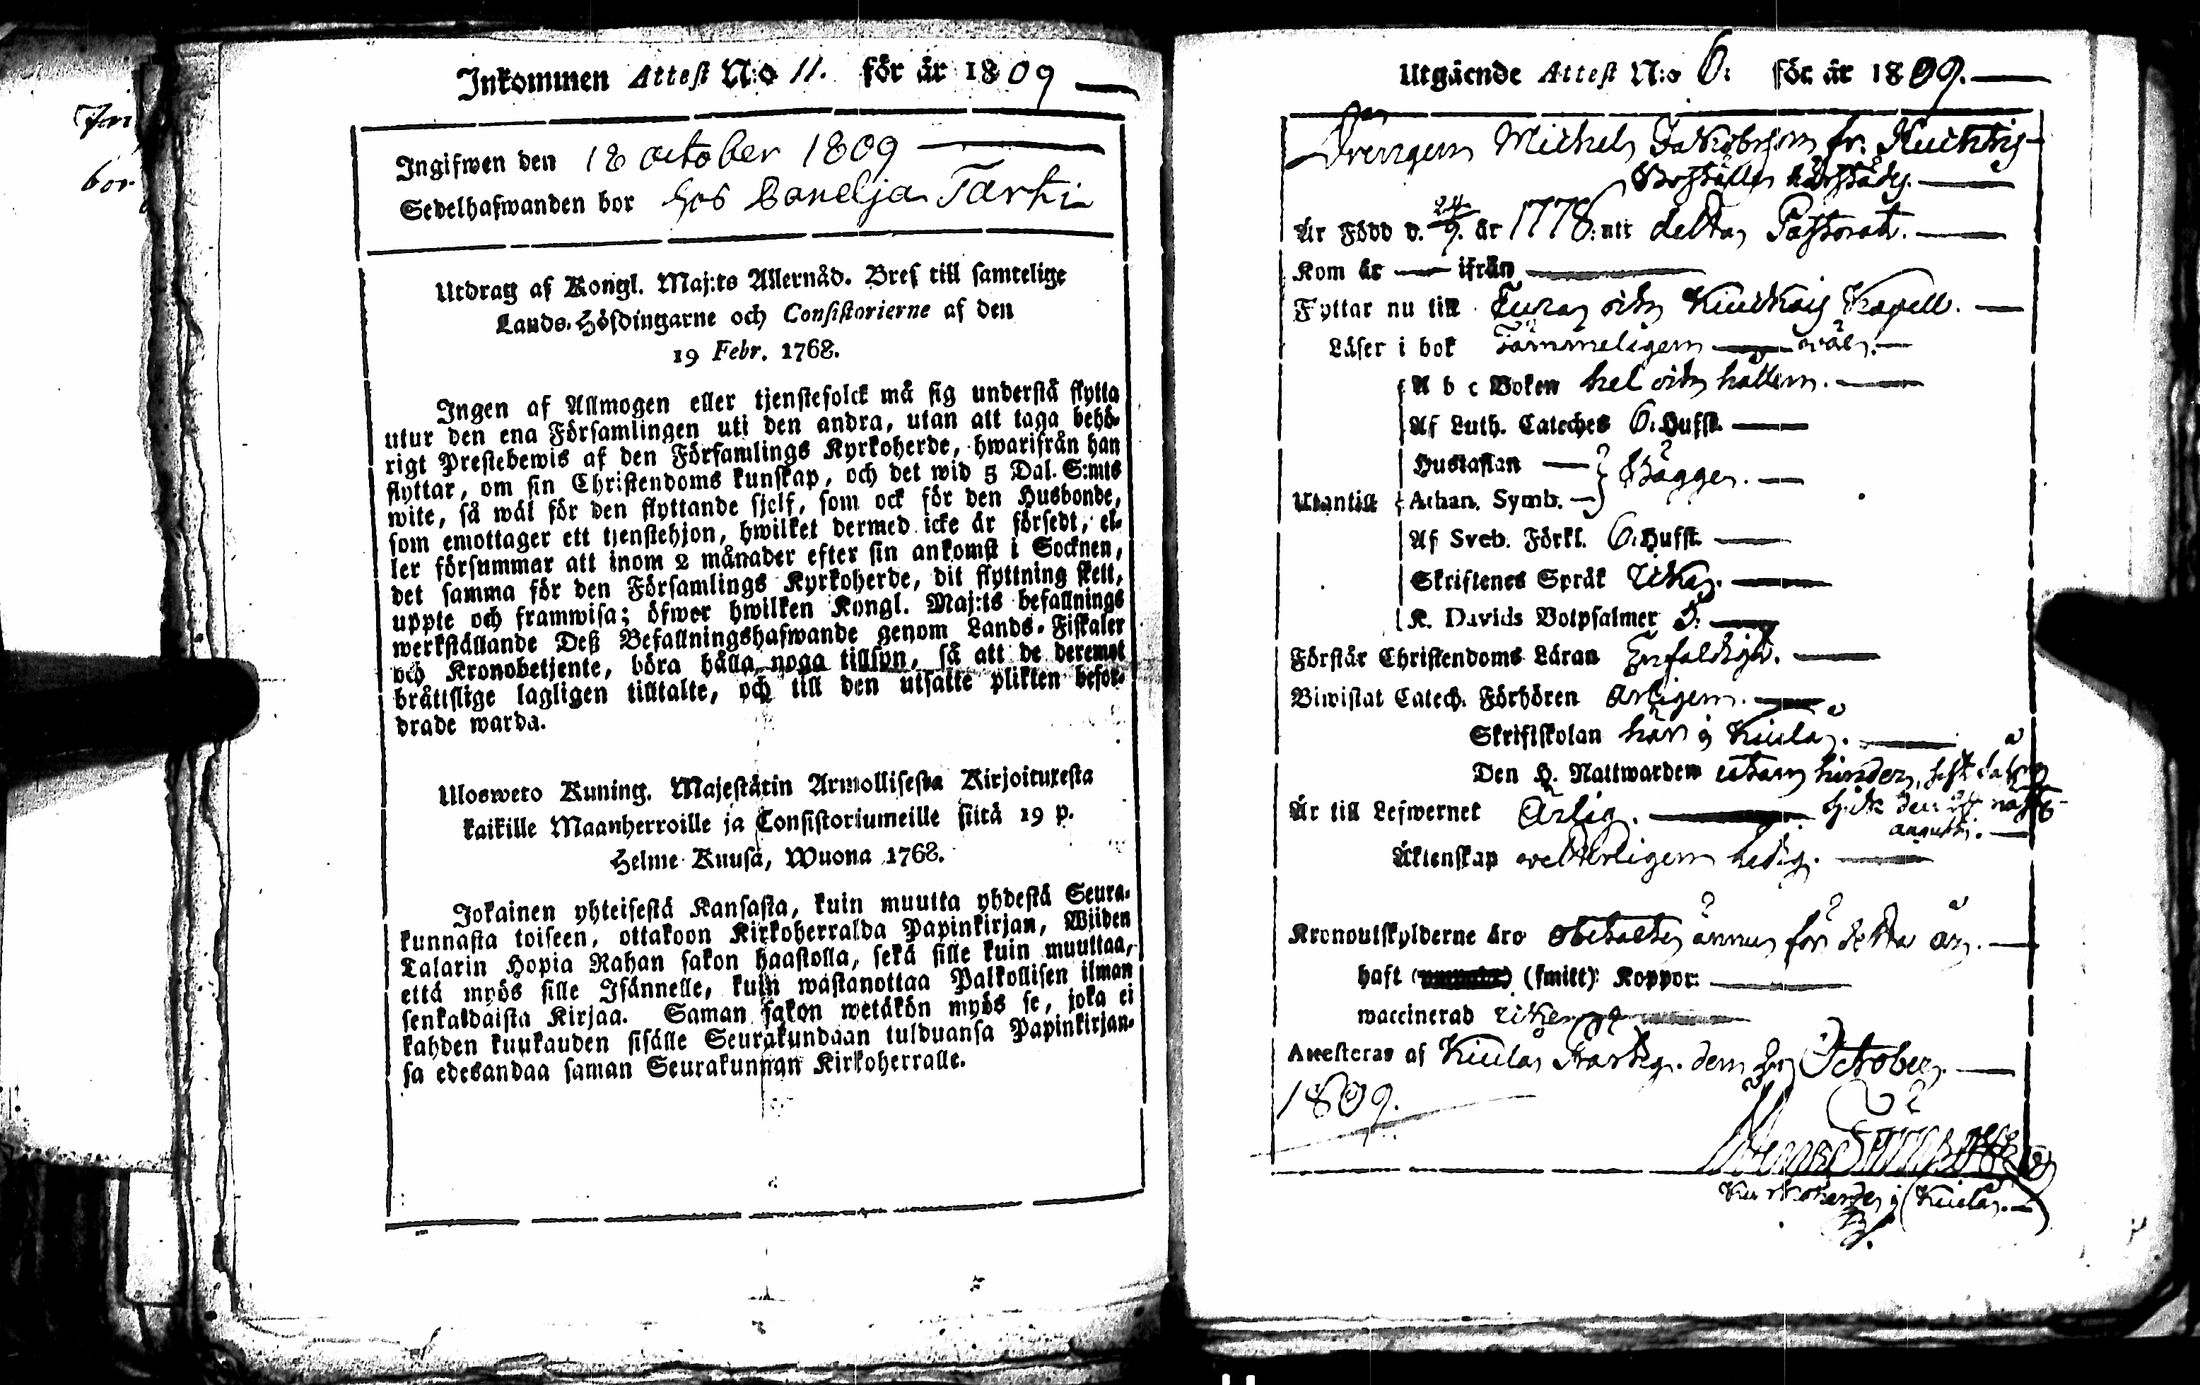 Inkommen Attest N:o 11. för år 1809
Ingifwen den 18 october 1809
Sedelhafwanden bor hos Banelja Tarki
Utdrag af Kongl. Maj:ts Allernåd. Bref till samtelige
Lands-Höfdingarne och Consistorierne af den
19 Febr. 1768.
Ingen af Allmogen eller tjenstefolck må sig understå flytta
utur den ena Församlingen uti den andra, utan att taga behö-
rigt Prestebewis af den Församlings Kyrkoherde, hwarifrån han
flyttar, om sin Christendoms kunskap, och det wid 5 Dal. S:mts
wite, så wäl för den flyttande sjelf, som ock för den Husbonde,
som emottager ett tjenstehjon, hwilket dermed icke är försedt, el-
ler försummar att inom 2 månader efter sin ankomst i Socknen,
det samma för den Församlings Kyrkoherde, dit flyttning skett,
uppte och framwisa; öfwer hwilken Kongl. Maj:ts befallnings
werkställande Deß Befallningshafwande genom Lands-Fiskaler
och Kronobetjente, böra hålla noga tillsyn, så att de deremot
bråttslige lagligen tilltalte, och till den utsatte plikten befor-
drade warda.
Ulosweto Kuning. Majestätin Armollisesta Kirjoituxesta
kaikille Maanherroille ja Consistoriumeille siitä 19 p.
Helme Kuusa, Wuona 1768.
Jokainen yhteisestä Kansasta, kuin muutta yhdestä Seura-
kunnasta toiseen, ottakoon Kirkoherralda Papinkirjan, Wiiden
Talarin Hopia Rahan sakon haastolla, sekä sille kuin muuttaa,
että myös sille Isännelle, kuin wastanottaa Palkollisen ilman
senkaldaista Kirjaa. Saman sakon wetäkön myös se, joka ei
kahden kuukauden sisälle Seurakundaan tulduansa Papinkirjan-
sa edesandaa saman Seurakunnan Kirkoherralle.
Utgående Attest N:o 6: för år 1809.
Drengen Michel Jakobsson fr.
Boställe härstädes.
Är Född d. 24/9. år 1778: uti detta Pastorat.
Kom år — ifrån —
Flyttar nu till och Kapell.
Läser i bok Tämmeligen wäl.
A b c Boken hel och hållen.
Af Luth. Cateches 6. Hufst.
Hustaflan
Athan. Symb. Bägge.
Utantill
Af Sveb. Förkl. 6. Hufst.
Skriftenes Språk
K. Davids Botpsalmer 3:
Förstår Christendoms Läran Enfaldigt.
Biwistat Catech. Förhören årligen.
Skriftskolan här i Kiula.
Den H. Nattwarden utan hinder,
Är till Lefwernet Ärlig.
augusti.
Äktenskap ledig.
Kronoutskylderne äro obetalte ännu för detta år.
haft (smitt) Koppor:
waccinerad icke
Attesteras af Kiula Prästg. den October
1809.
Kyrkoherde i Kiula.